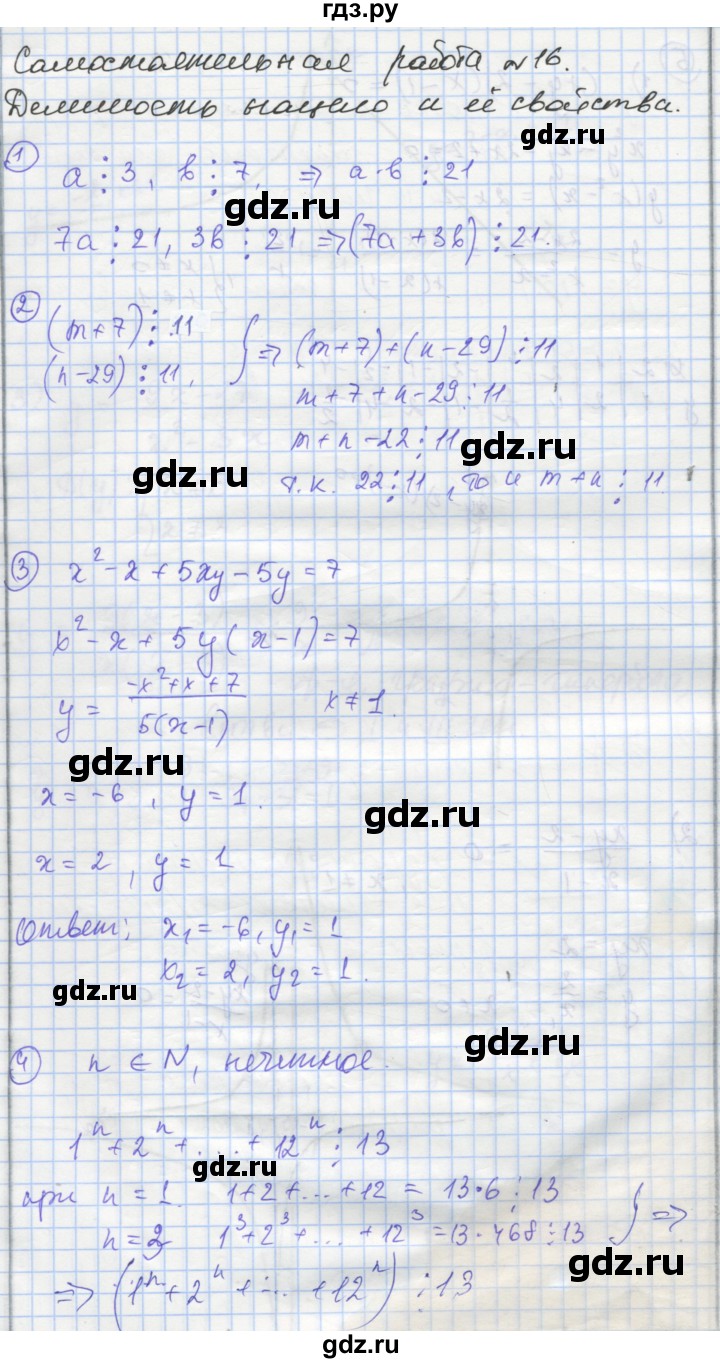 гдз.ру
Самостоятельная работа №16.
Делимость нацело и её свойства.
gdz.ru
1 a⋮3, b⋮7, ⇒ a·b⋮21
gdz.ru
7a⋮21, 3b⋮21 ⇒ (7a+3b)⋮21.
2 (m+7)⋮11
(n-29)⋮11, } ⇒ (m+7)+(n-29)⋮11
m+7+n-29⋮11
m+n-22⋮11
gdz.ru
gdz.ru
т.к. 22⋮11, то и m+n⋮11
3 x²-x+5xy-5y=7
x²-x+5y(x-1)=7
y = (-x²+x+7)/(5(x-1)) x≠1.
gdz.ru
x=-6, y=1.
gdz.ru
x=2, y=1
Ответ: x₁=-6, y₁=1
x₂=2, y₂=1.
gdz.ru
gdz.ru
4 n∈N, нечетное.
1ⁿ+2ⁿ+...+12ⁿ⋮13
gdz.ru
при n=1. 1+2+...+12=13·6⋮13
n=3 1³+2³+...+12³=13·468⋮13 } ⇒
⇒ (1ⁿ+2ⁿ+...+12ⁿ)⋮13
gdz.ru
gdz.ru